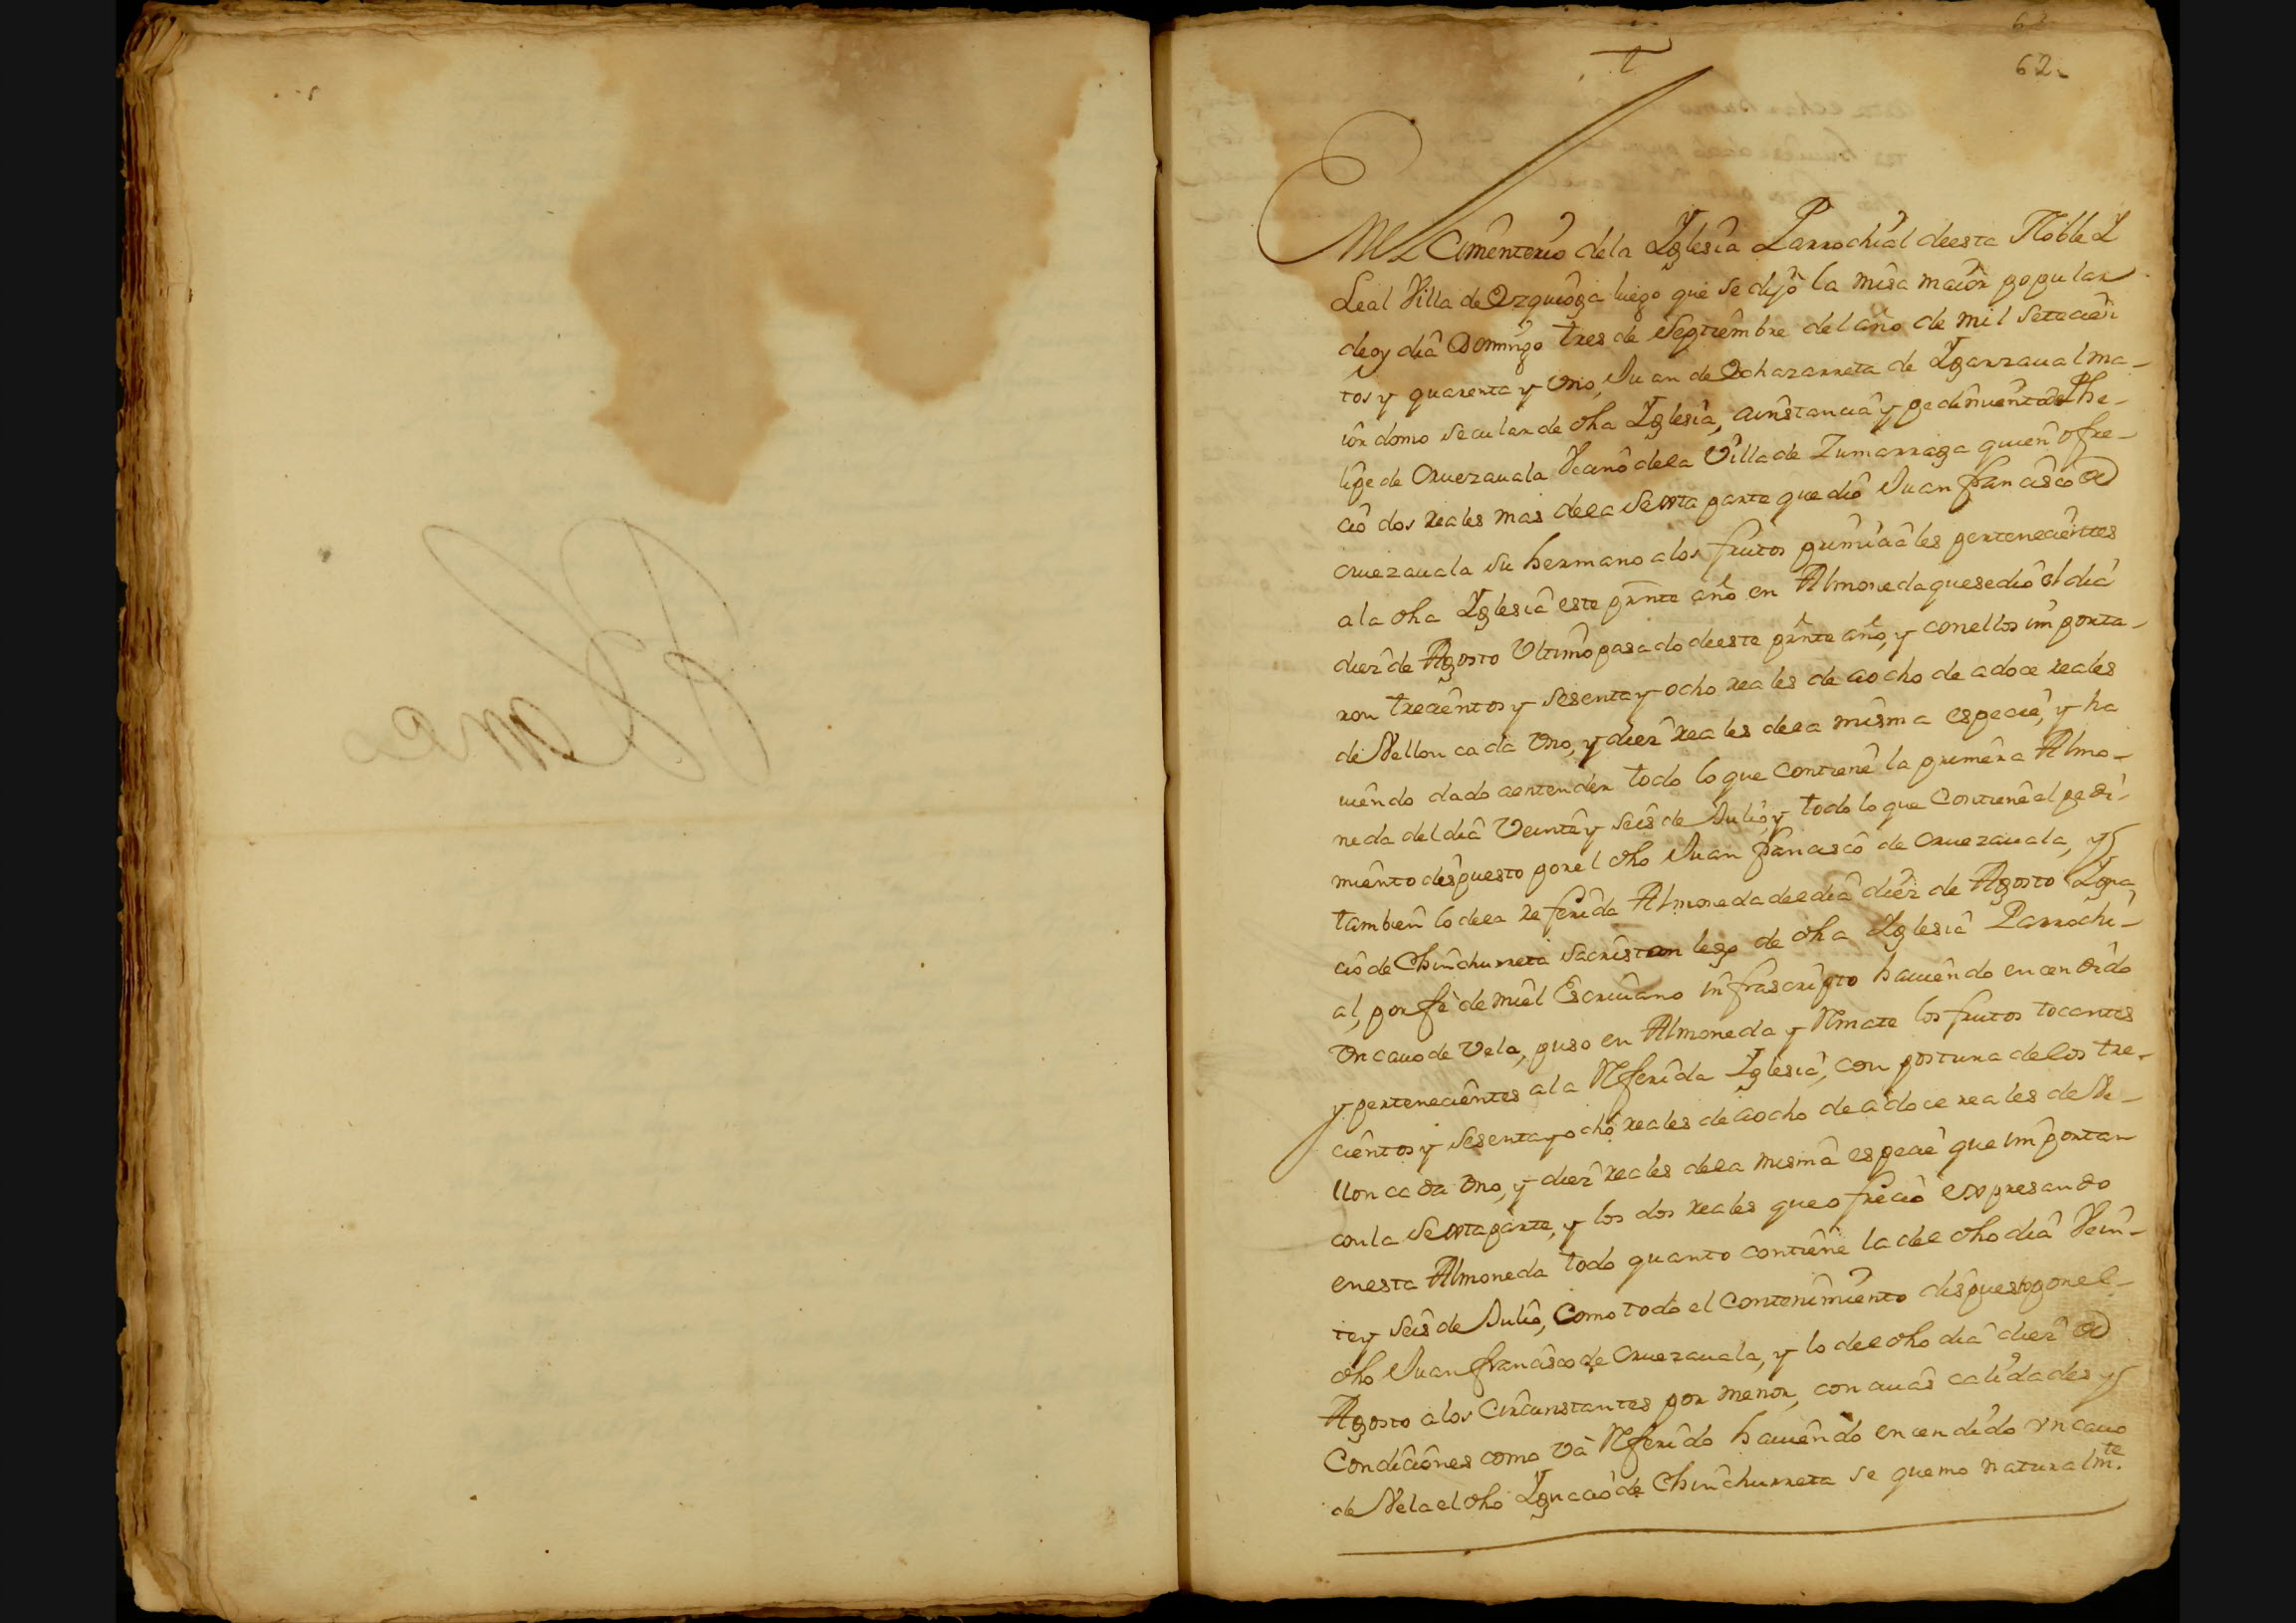 62
62
En el Cimenterio dela Yglesia Parrochial deesta Noble Y
Leal Villa de Ezquioga luego que se dijô la misa maiôr popular
deoy diâ Domingo tres de Septiembre del año de mil setecien
tos y quarenta y Vno, Juan de Ocharaneta de Ygarzaual ma-
iôr domo secular de dha Yglesia, aînstancia y pedimiento de Phe-
lipe de Oruezauala Vecino dela Villa de Zumarraga quien ofre-
ciô dos reales mas dela Sexta parte que diô Juan francisco de
oruezauala su hermano alos frutos primiciales pertenecientes
ala dha Yglesia este prnte año en Almoneda quesediô el dia
diez de Agosto Ultimo pasado deeste prnte año, y conellos importa-
ron trecientos y sesenta y ocho reales de aocho de adoce reales
de Vellon cada Vno, y diez reales dela misma especie, y ha
uiendo dado aentender todo loque contiene la primera Almo-
neda del dia Veinte y seis de Julio, y todo lo que Contiene el pedi-
miento despuesto porel dho Juan francisco de oruezauala, y
tambien lo dela referida Almoneda deldia diez de Agosto Ygna
cio de Chinchurreta Sacristan lego de dha Yglesia Parrochi-
al, por fè de miel Escriuano infrascripto hauiendo encendido
Vn cauo de Vela, puso en Almoneda y Rmate los frutos tocantes
y pertenecientes ala Rferida Yglesia, con postura delos tre-
cientos y sesenta y ocho reales de aocho de adoce reales de Ve-
llon cada Vno, y diez reales dela misma especie que importan
conla Sexta parte, y los dos reales que ofrecio expresando
enesta Almoneda todo quanto contiene la del dho dia Vein-
te y seis de Julio, Como todo el Contenimiento dispuesto porel-
dho Juan francisco de oruezauala, y lo del dho dia diez de
Agosto alos Circunstantes por menor, con cuias calidades y
Condiciones como Và Rferido hauiendo encendido Vn cauo
de Vela el dho Ygnacio de Chinchurreta se quemo naturalmte.